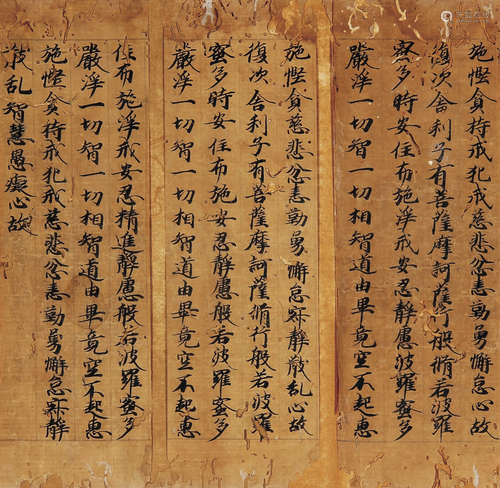 施慳貪持戒犯戒慈悲忿恚勤勇懈怠心故
復次舍利子有菩薩摩訶薩脩行般若波羅
蜜多時安住布施淨戒安忍靜慮般若波羅蜜多
嚴淨一切智一切相智道由畢竟空不起惠
施慳貪慈悲忿恚勤勇懈怠寂靜散乱心故
復次舍利子有菩薩摩訶薩脩行般若波羅
蜜多時安住布施安忍靜慮般若波羅蜜多
嚴淨一切智一切相智道由畢竟空不起惠
住布施淨戒安忍精進靜慮般若波羅蜜多
嚴淨一切智一切相智道由畢竟空不起惠
施慳貪持戒犯戒慈悲忿恚勤勇懈怠寂靜
散乱智慧愚癡心故